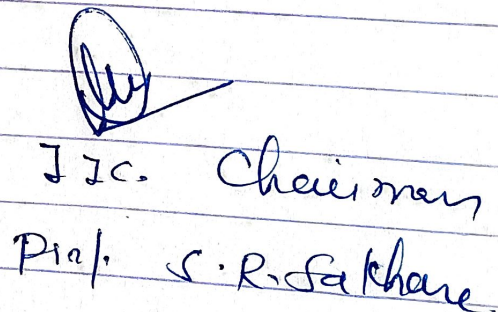 IIC. Chairman
Prof. S.R. Sakhare